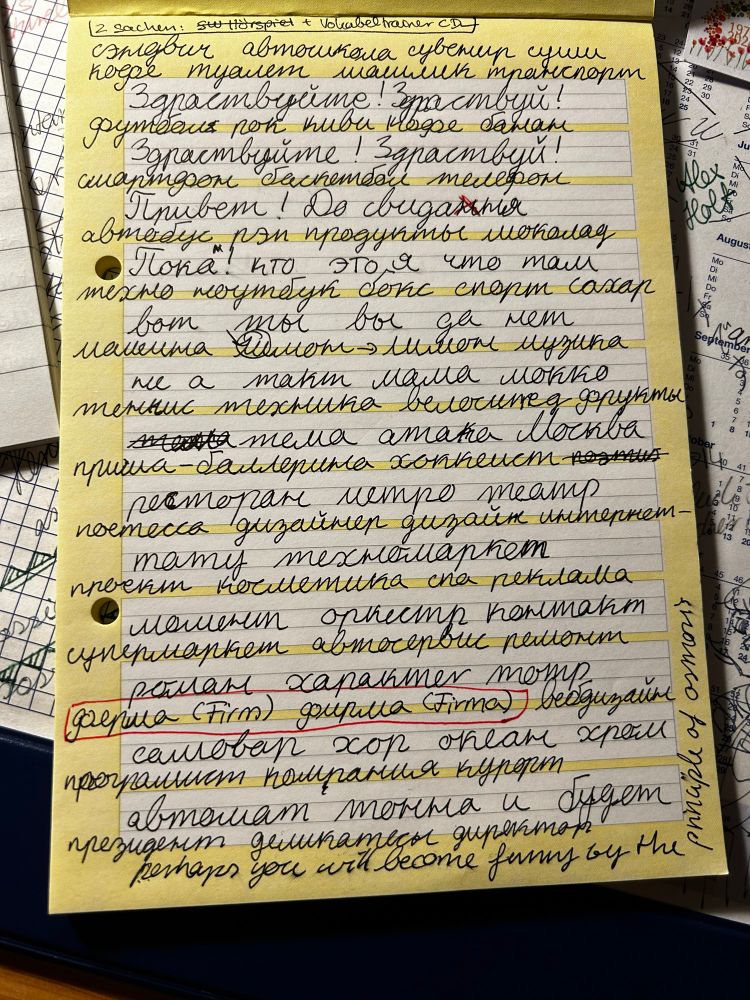 2 Sachen: SW Hörspiel + Vokabeltrainer CD
сэндвич автошкола сувенир суши
кофе туалет шашлик транспорт
Здраствуйте! Здраствуй!
футбол рок киви кофе банан
Здраствуйте! Здраствуй!
смартфон баскетбол телефон
Привет! До свидания
автобус рэп продукты шоколад
Пока! кто это я что там
техно ноутбук бокс спорт сахар
вот ты вы да нет
машина лимон → лимон музика
не а такт мама мокко
теннис техника велосипед фрукты
тема атака Москва
прима-баллерина хоккеист
ресторан метро театр
поетесса дизайнер дизайн интернет-
тату техномаркет
проект косметика спа реклама
момент оркестр контакт
супермаркет автосервис ремонт
роман характер тонр
ферма (Firm) фирма (Firma) вебдизайн
самовар хор океан хром
програмист компания курорт
автомат тонна и будет
президент деликатесы директор
perhaps you will become funny by the
prinziple of osmosis
Alex
Juli
August
Mo
Di
Mi
Do
Fr
Sa
So
September